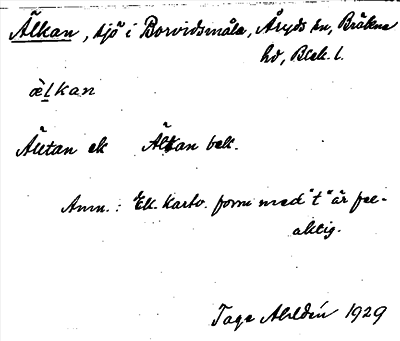 Älkan, sjö i Borvidsmåla, Åryds sn, Bräkne
hd, Blek. l.
æ̀lkan
Ältan ek Älkan bek.
Anm.: Ek. karto. form med "t" är fel-
aktig.
Tage Ahldén 1929